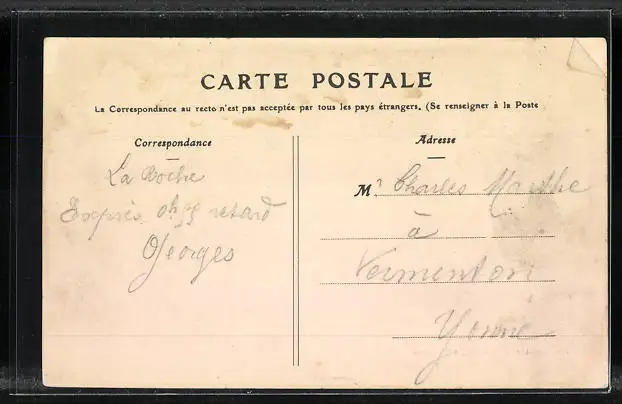 CARTE POSTALE
La Correspondance au recto n'est pas acceptée par tous les pays étrangers. (Se renseigner à la Poste
Correspondance
Adresse
La Roche
Express 0h55 retard
Georges
Mr Charles Marthe
à
Vermenton
Yonne